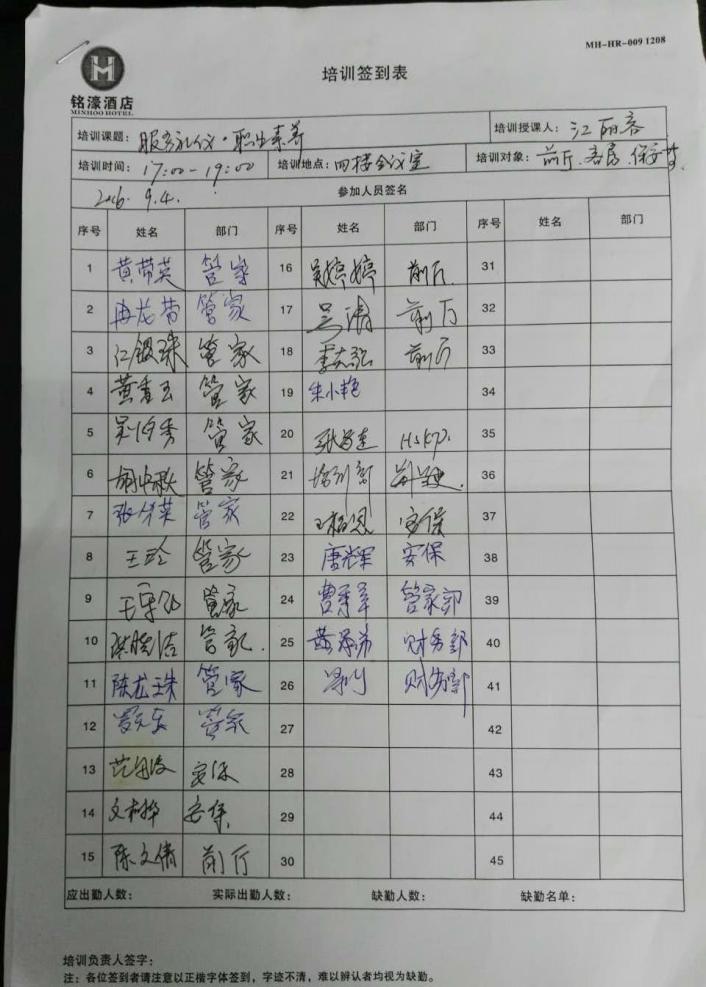 MH-HR-009 1208
铭濠酒店
MINHOO HOTEL
培训签到表
培训课题: 服务礼仪·职业素养 培训授课人: 江丽容
培训时间: 17:00-19:00 培训地点: 四楼会议室 培训对象: 前厅.客房.保安等
2016. 9.4. 参加人员签名
序号 姓名 部门 序号 姓名 部门 序号 姓名 部门
1 黄带英 管家 16 吴婷婷 前厅 31
2 冉龙菊 管家 17 吴涛 前厅 32
3 仁银珠 管家 18 李志弘 前厅 33
4 黄香玉 管家 19 朱小艳 34
5 管家 20 HSKP. 35
6 管家 21 36
7 张华英 管家 22 安保 37
8 王玲 管家 23 唐光军 安保 38
9 管家 24 曹军军 管家部 39
10 管家. 25 财务部 40
11 陈龙珠 管家 26 财务部 41
12 管家 27 42
13 安保 28 43
14 安保 29 44
15 陈文倩 前厅 30 45
应出勤人数: 实际出勤人数: 缺勤人数: 缺勤名单:
培训负责人签字:
注: 各位签到者请注意以正楷字体签到，字迹不清，难以辨认者均视为缺勤。